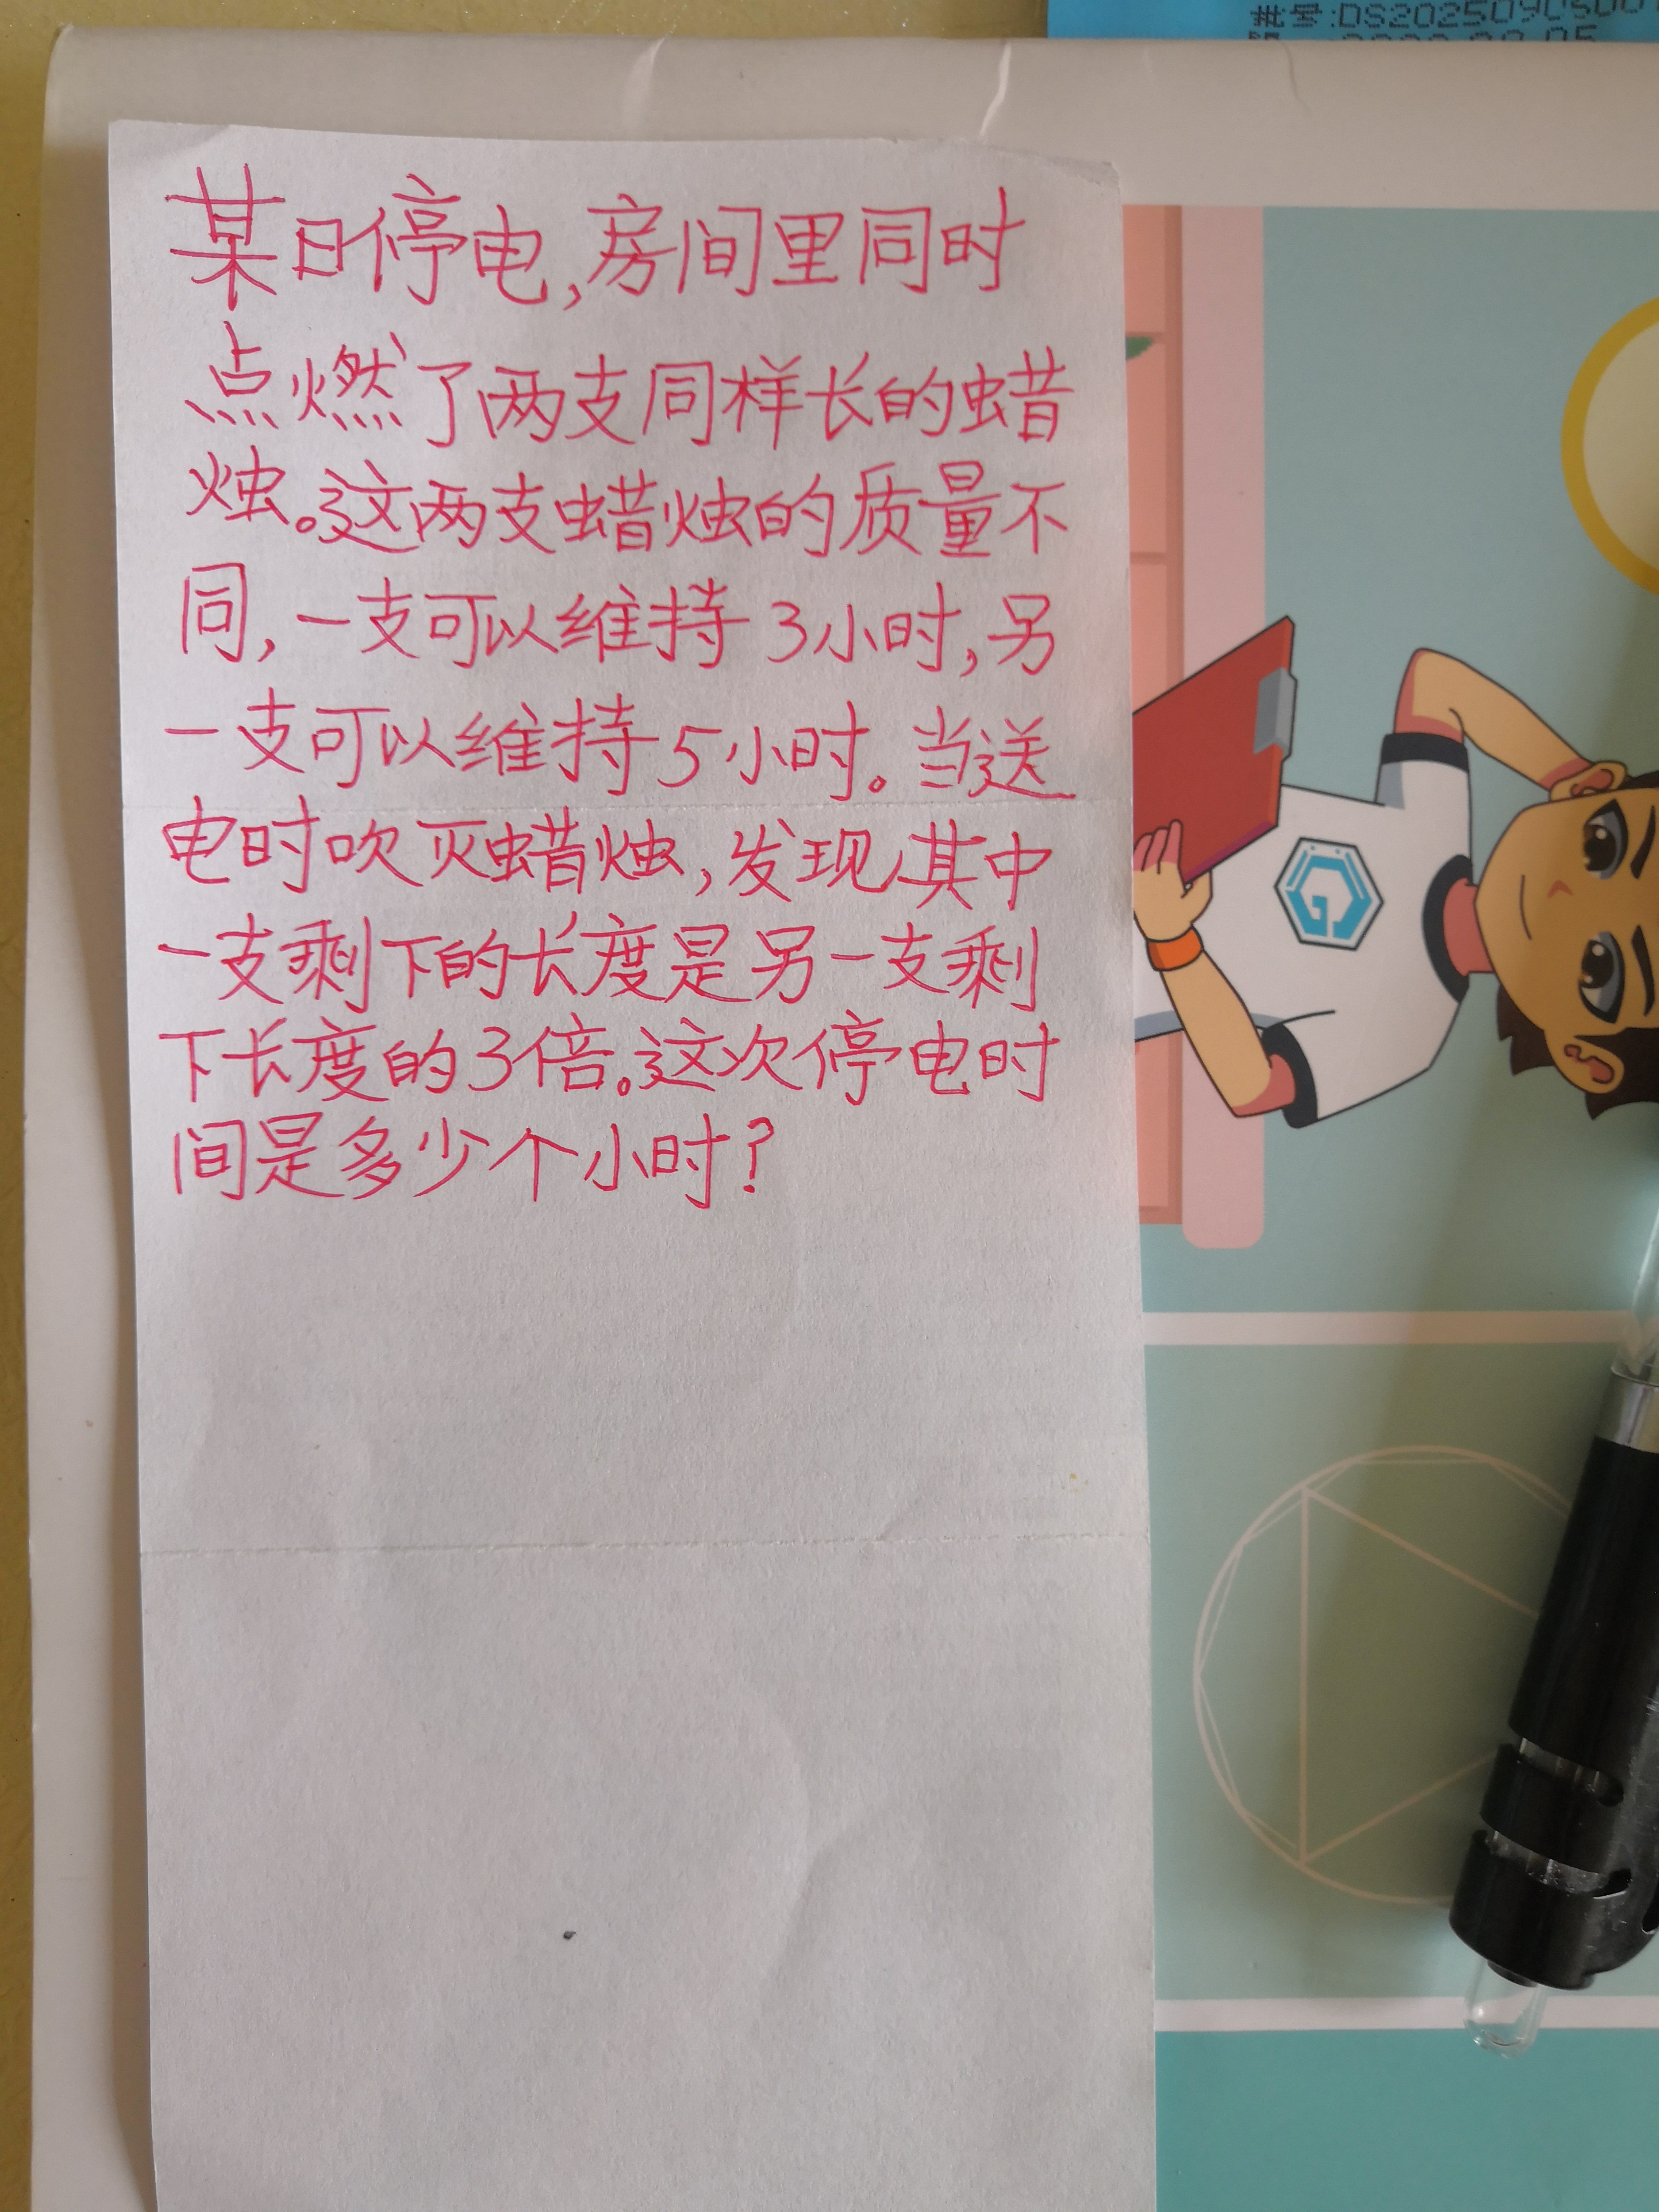 某日停电,房间里同时
点燃了两支同样长的蜡
烛。这两支蜡烛的质量不
同,一支可以维持3小时,另
一支可以维持5小时。当送
电时吹灭蜡烛,发现其中
一支剩下的长度是另一支剩
下长度的3倍。这次停电时
间是多少个小时?